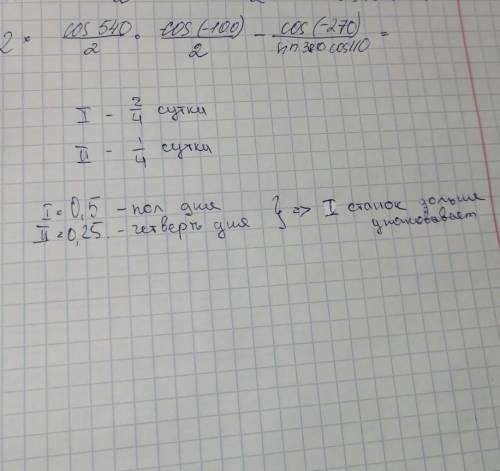 2 · cos 540/2 · cos(-100)/2 - cos(-270)/sin 380 cos 110 =
I - 2/4 сутки
II - 1/4 сутки
I = 0,5 - пол дня
II = 0,25 - четверть дня } => I станок дольше
упаковывает